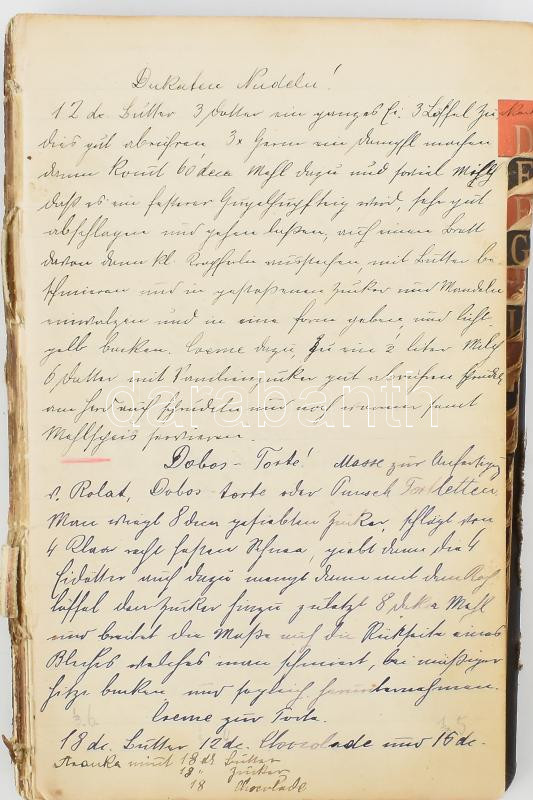 Dukaten Nudeln!
12 dc. Butter 3 Dotter ein ganzes Ei. 3 Löffel Zucker
dies gut abrühren 3x Germ ein Dampfl machen
dann komt 60 deca Mehl dazu und soviel Milch
daß es ein fester Gugelhupfteig wird, sehr gut
abschlagen und gehen laßen, auf einem Brett
davon dann kl. Krapferln ausstechen, mit Butter be-
schmieren und in gestoßenen Zucker und Mandeln
einwalzen und in eine Form geben und licht-
gelb backen. Creme dazu, zu ein ½ Liter Milch
6 Dotter mit Vanilienzucker gut abrühren
am Herd auf sprudeln und noch warmer samt
Mehlspeis servieren.
Dobos-Torte! Masse zur Anfertigung
v. Rolat, Dobos-torte oder Punsch Tortletten
Man wiegt 8 dcca gesiebten Zucker, schlägt von
4 Klaar recht festen Schnee, giebt dann die 4
Eidötter auch dazu mengt dann mit dem Koch-
löffel den Zucker hinzu zuletzt 8 deka Mehl
und breitet die Maße auf die Rückseite eines
Bleches welches man schmiert, bei mäßiger
Hitze backen und sogleich herunternehmen.
Creme zur Torte.
18 dc. Butter 12 dc. Choccolade und 16 dc.
Aranka nimt 18 dk Butter
18 " Zucker
18 Chocolade
D
E
F
G
darabanth